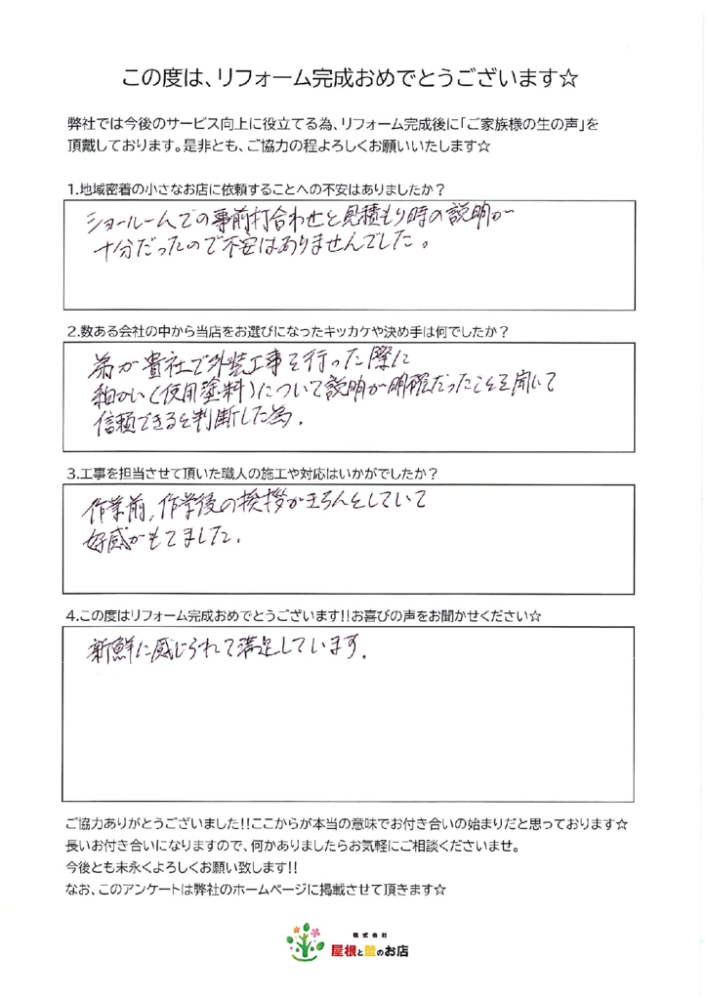 この度は、リフォーム完成おめでとうございます☆
弊社では今後のサービス向上に役立てる為、リフォーム完成後に「ご家族様の生の声」を
頂戴しております。是非とも、ご協力の程よろしくお願いいたします☆
1.地域密着の小さなお店に依頼することへの不安はありましたか？
ショールームでの事前打合わせと見積もり時の説明が
十分だったので不安はありませんでした。
2.数ある会社の中から当店をお選びになったキッカケや決め手は何でしたか？
が貴社で外装工事を行った際に
細かい(使用塗料)について説明が明確だったことを聞いて
信頼できると判断した為.
3.工事を担当させて頂いた職人の施工や対応はいかがでしたか？
作業前,作業後の挨拶がきちんとしていて
好感がもてました.
4.この度はリフォーム完成おめでとうございます!!お喜びの声をお聞かせください☆
新鮮に感じられて満足しています.
ご協力ありがとうございました!!ここからが本当の意味でお付き合いの始まりだと思っております☆
長いお付き合いになりますので、何かありましたらお気軽にご相談くださいませ。
今後とも末永くよろしくお願い致します!!
なお、このアンケートは弊社のホームページに掲載させて頂きます☆
株式会社
屋根と壁のお店